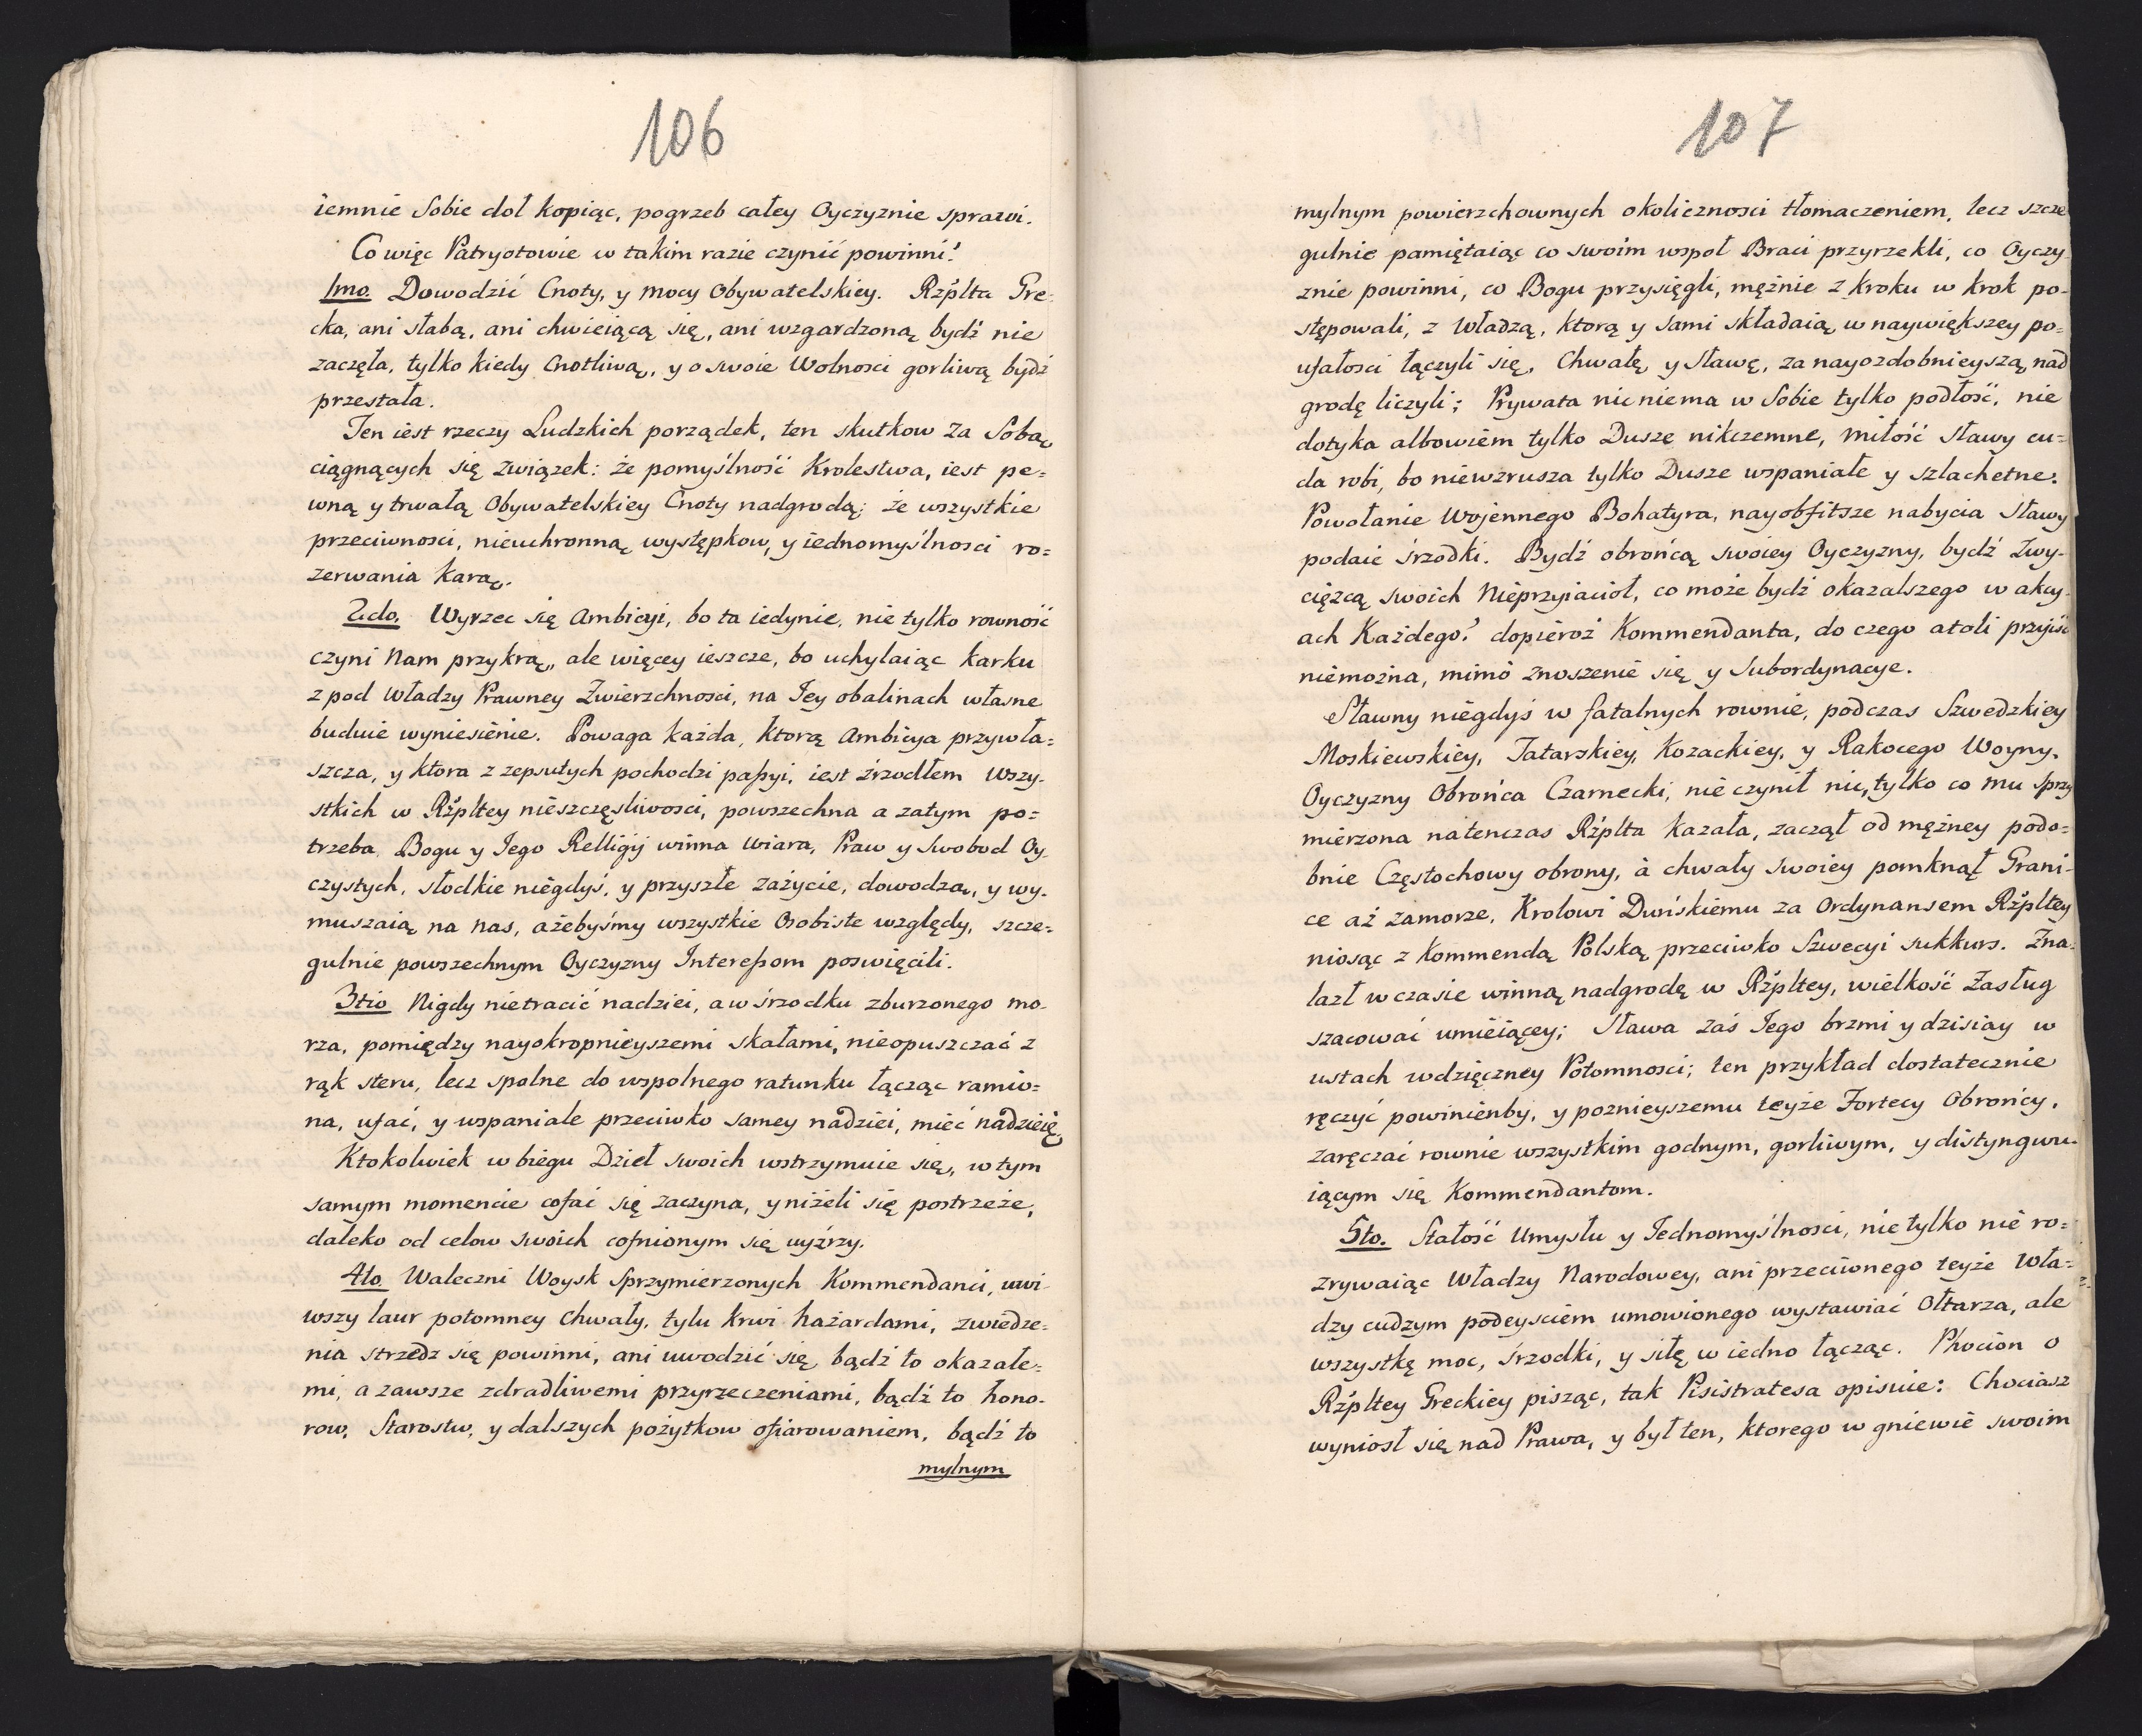 106
iemnie Sobie doł kopiąc, pogrzeb całey Oyczyznie sprawi.
Co więc Patryotowie w takim razie czynić powinni?
1mo. Dowodzić Cnoty, y mocy Obywatelskiey. Rżplta Gre-
cka, ani słabą, ani chwieiącą się, ani wzgardzoną bydź nie
zaczęła, tylko kiedy Cnotliwą, y o swoie Wolnosci gorliwą bydź
przestała.
Ten iest rzeczy Ludzkich porządek, ten skutkow za Sobą
ciągnących się związek: że pomyślność Krolestwa, iest pe=
wną y trwałą Obywatelskiey Cnoty nadgrodą; że wszystkie
przeciwnosci, nieuchronną występkow, y iednomyślnosci ro=
zerwania karą.
2do. Wyrzec się Ambicyi, bo ta iedynie, nie tylko rowność
czyni Nam przykrą, ale więcey ieszcze, bo uchylaiąc karku
z pod Władzy Prawney Zwierzchnosci, na Jey obalinach własne
buduie wyniesienie. Powaga każda, ktorą Ambicya przywła=
szcza, y ktora z zepsutych pochodzi paßyi, iest źrzodłem wszy-
stkich w Rżpltey nieszczęsliwosci, powszechna a zatym po=
trzeba, Bogu y Jego Relligij winna Wiara, Praw y Swobod Oy-
czystych, słodkie niegdyś, y przyszłe zażycie, dowodzą, y wy-
muszaią na nas, ażebyśmy wszystkie Osobiste względy, szcze=
gulnie powszechnym Oyczyzny Intereßom poswięcili.
3tio Nigdy nietracić nadziei, a w śrzodku zburzonego mo-
rza, pomiędzy nayokropnieyszemi skałami, nieopuszczać z
rąk steru, lecz spolne do wspolnego ratunku łącząc ramio=
na, ufać, y wspaniale przeciwko samey nadziei, mieć nadzieię,
Ktokolwiek w biegu Dzieł swoich wstrzymuie się, w tym
samym momencie cofać się zaczyna, y niżeli się postrzeże,
daleko od celow swoich cofnionym się uyźrzy.
4to Waleczni Woysk Sprzymierzonych Kommendanci, uwi-
wszy laur potomney Chwały, tylu krwi hażardami, zwiedze=
nia strzedz się powinni, ani uwodzić się, bądź to okazałe=
mi, a zawsze zdradliwemi przyrzeczeniami, bądź to hono-
row, Starostw, y dalszych pożytkow ofiarowaniem, bądź to
mylnym
107
mylnym powierzchownych okolicznosci tłomaczeniem, lecz szcze
gulnie pamiętaiąc co swoim wspoł Braci przyrzekli, co Oyczy
znie powinni, co Bogu przysięgli, mężnie z kroku w krok po-
stępowali, z Władzą, ktorą y sami składaią, w naywiększey po=
ufałosci łączyli się, Chwałę, y Sławę, za nayozdobnieyszą, nad
grodę liczyli; Prywata nic niema w Sobie tylko podłość, nie
dotyka albowiem tylko Dusze nikczemne, miłość sławy cu=
da robi, bo niewzrusza tylko Dusze wspaniałe y szlachetne.
Powołanie Wojennego Bohatyra, nayobfitsze nabycia Sławy
podaie śrzodki. Bydź obrońcą swoiey Oyczyzny, bydź Zwy-
ciężcą swoich Nieprzyiacioł, co może bydź okazalszego w akcy-
ach Każdego? dopieroż Kommendanta, do czego atoli przyiść
niemożna, mimo znoszenie się y Subordynacye.
Sławny niegdyś w fatalnych rownie, podczas Szwedzkiey
Moskiewskiey, Tatarskiey, Kozackiey, y Rakocego Woyny,
Oyczyzny Obrońca Czarnecki, nie czynił nic, tylko co mu sprzy
mierzona natenczas Rżplta kazała, zaczął od mężney podo=
bnie Częstochowy obrony, à chwały swoiey pomknął Grani-
ce aż zamorze, Krolowi Duńskiemu za Ordynansem Rżpltey
niosąc z Kommendą Polską przeciwko Szwecyi sukkurs. Zna=
lazł w czasie winną nadgrodę w Rżpltey, wielkość Zasług
szacować umieiącey; Sława zaś Jego brzmi y dzisiay w
ustach wdzięczney Potomnosci; ten przykład dostatecznie
ręczyć powinienby, y poznieyszemu teyże Fortecy Obrońcy,
zaręczać rownie wszystkim godnym, gorliwym, y distyngwu-
iącym się Kommendantom.
5to. Stałość Umysłu y Jednomyślnosci, nie tylko nie ro=
zrywaiąc Władzy Narodowey, ani przeciwnego teyże Wła=
dzy cudzym podeysciem umowionego wystawiać Ołtarza, ale
wszystkę moc, śrzodki, y siłę w iedno łącząc. Phocion o
Rżpltey Greckiey pisząc, tak Pisistratesa opisuie: Chociasz
wyniosł się nad Prawa, y był ten, ktorego w gniewie swoim